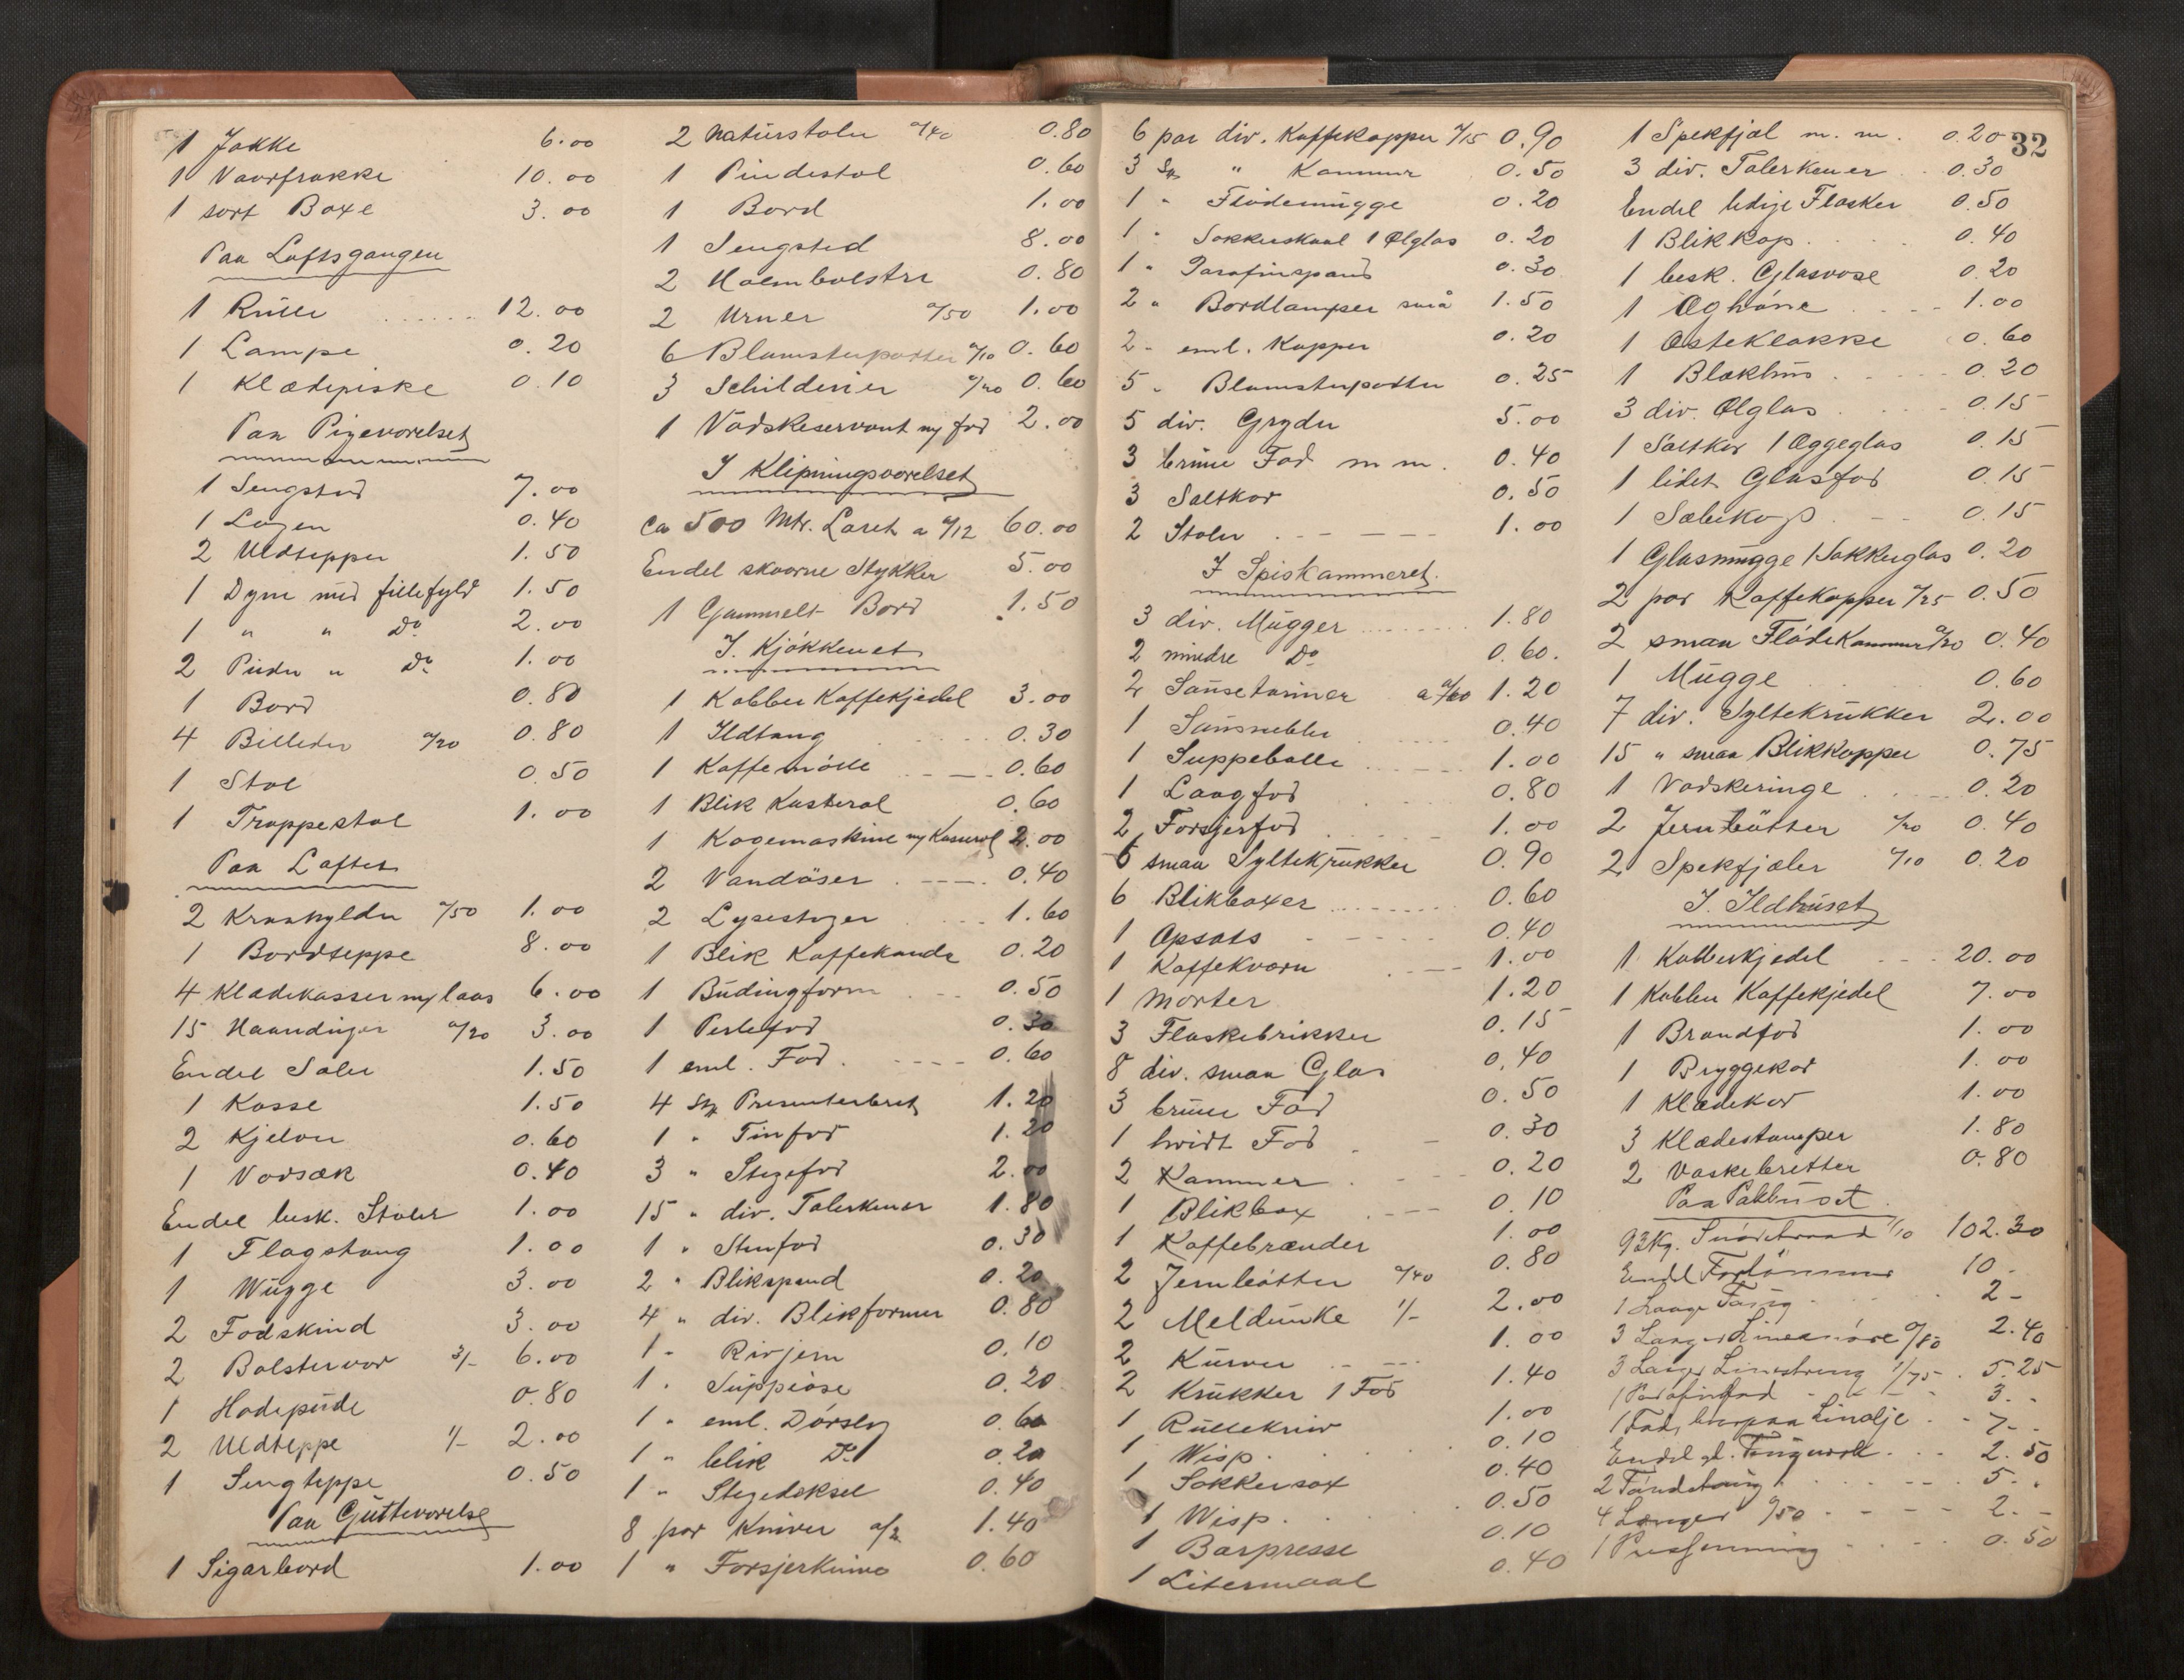 1 Jakke 6.00
1 Vaarfrakke 10.00
1 sort Boxe 3.00
Paa Loftsgangen
1 Rulle 12.00
1 Lampe 0.20
1 Klædepiske 0.10
Paa Pigeværelset
1 Sengsted 7.00
1 Lagen 0.40
2 Uldtepper 1.50
1 Dyne med fillefyld 1.50
1 " " Do 2.00
2 Puder " Do 1.00
1 Bord 0.80
4 Billeder a/20 0.80
1 Stol 0.50
1 Trappestol 1.00
Paa Loftet
2 Kraahylder a/50 1.00
1 Bordteppe 8.00
4 Klædekasser m/laas 6.00
15 Haandinger a/20 3.00
Endel Saler 1.50
1 Kasse 1.50
2 Kjeler 0.60
1 Vadsæk 0.40
Endel besk. Stoler 1.00
1 Flagstang 1.00
1 Wugge 3.00
2 Fodskind 3.00
2 Bolstervar 3/- 6.00
1 Hodepude 0.80
2 Uldteppe 1/- 2.00
1 Sengteppe 0.50
Paa Gutteværelset
1 Sigarbord 1.00
2 Naturstoler a/40 0.80
1 Pindestol 0.60
1 Bord 1.00
1 Sengsted 8.00
2 Halmbolstre 0.80
2 Urner a/50 1.00
6 Blomsterpotter a/10 0.60
3 Schilderier a/20 0.60
1 Vadskeservant m/fad 2.00
I Klipningsværelset
Ca 500 Mtr. Læret a a/12 60.00
Endel skaarne Stykker 5.00
1 Gammelt Bord 1.50
I. Kjøkkenet
1 Kobber Kaffekjedel 3.00
1 Ildtang 0.30
1 Kaffemølle 0.60
1 Blik Kasterol 0.60
1 Kogemaskine m/Kasserol 2.00
2 Vandøser 0.40
2 Lysestager 1.60
1 Blik Kaffekande 0.20
1 Budingform 0.50
1 Perlefad 0.30
1 eml. Fad 0.60
4 Stk Presenterbret 1.20
1 " Tinfad 1.20
3 " Stegefad 2.00
15 " div. Talerkener 1.80
1 " Stenfad 0.30
2 " Blikspand 0.20
4 " div. Blikformer 0.80
1 " Rivjern 0.10
1 " Suppeøse 0.20
1 " eml. Dørslag 0.60
1 " blik Do 0.20
1 " Stegedeksel 0.40
8 par Kniver 1.40
1 " Forsjerkniv 0.60
32
6 par div. Kaffekopper a/15 0.90
3 Stk " Kanner 0.50
1 " Flødemugge 0.20
1 " Sokkerskaal 1 Ølglas 0.20
1 " Parafinspand 0.30
2 " Bordlamper små 1.50
2 " eml. Kopper 0.20
5 " Blomsterpotter 0.25
5 div. Gryder 5.00
3 brune Fad m m. 0.40
3 Saltkar 0.50
2 Stoler 1.00
I Spiskammeret.
3 div. Mugger 1.80
2 mindre Do 0.60.
2 Sauseteriner a a/60 1.20
1 Sausnebbe 0.40
1 Suppebolle 1.00
1 Langfad 0.80
2 Forsjerfad 1.00
6 smaa Syltekrukker 0.90
6 Blikboxer 0.60
1 Opsats 0.40
1 Kaffekværn 1.00
1 Morter 1.20
3 Flaskebrikker 0.15
8 div. smaa Glas 0.40
3 brune Fad 0.50
1 hvidt Fad 0.30
2 Kanner 0.20
1 Blikbox 0.10
1 Kaffebrænder 1.00
2 Jernbøtter a/40 0.80
2 Meldunke 1/- 2.00
2 Kurver 1.00
2 Krukker 1 Fad 1.40
1 Rullekniv 1.00
1 Wisp 0.10
1 Sokkersax 0.40
1 Wisp 0.50
1 Bærpresse 0.10
1 Litermaal 0.40
1 Spekfjæl m. m. 0.20
3 div. Talerkener 0.30
Endel ledige Flasker 0.50
1 Blikkop 0.40
1 besk. Glasvase 0.20
1 Æghøne 1.00
1 Osteklokke 0.60
1 Blækhus 0.20
3 div. Ølglas 0.15
1 Saltkar 1 Æggeglas 0.15
1 lidet Glasfad 0.15
1 Sæbekop 0.15
1 Glasmugge 1 Sokkerglas 0.20
2 par Kaffekopper a/25 0.50
2 smaa Flødekanner a/20 0.40
1 Mugge 0.60
7 div. Syltekrukker 2.00
15 " smaa Blikkopper 0.75
1 Vadskeringe 0.20
2 Jernbøtter a/20 0.40
2 Spekfjæler a/10 0.20
I. Ildhuset
1 Kobberkjedel 20.00
1 Kobber Kaffekjedel 7.00
1 Brandfad 1.00
1 Bryggekar 1.00
1 Klædekar 1.00
3 Klædestamper 1.80
2 Vaskebretter 0.80
Paa Pakhuset
93Kg. 1/10 102.30
Endel Fortømmer 10.
1 Lange Taug 2-
3 Langer Linesnøre a/80 2.40
3 Langer Linestreng 1/75 5.25
1 Parafinfad 3.-
1 Fad, hvorpaa Linolje 7-
Endel gl. Taugverk 2.50
2 5-
4 Længer a/50 2.-
1 Presenning 0.50